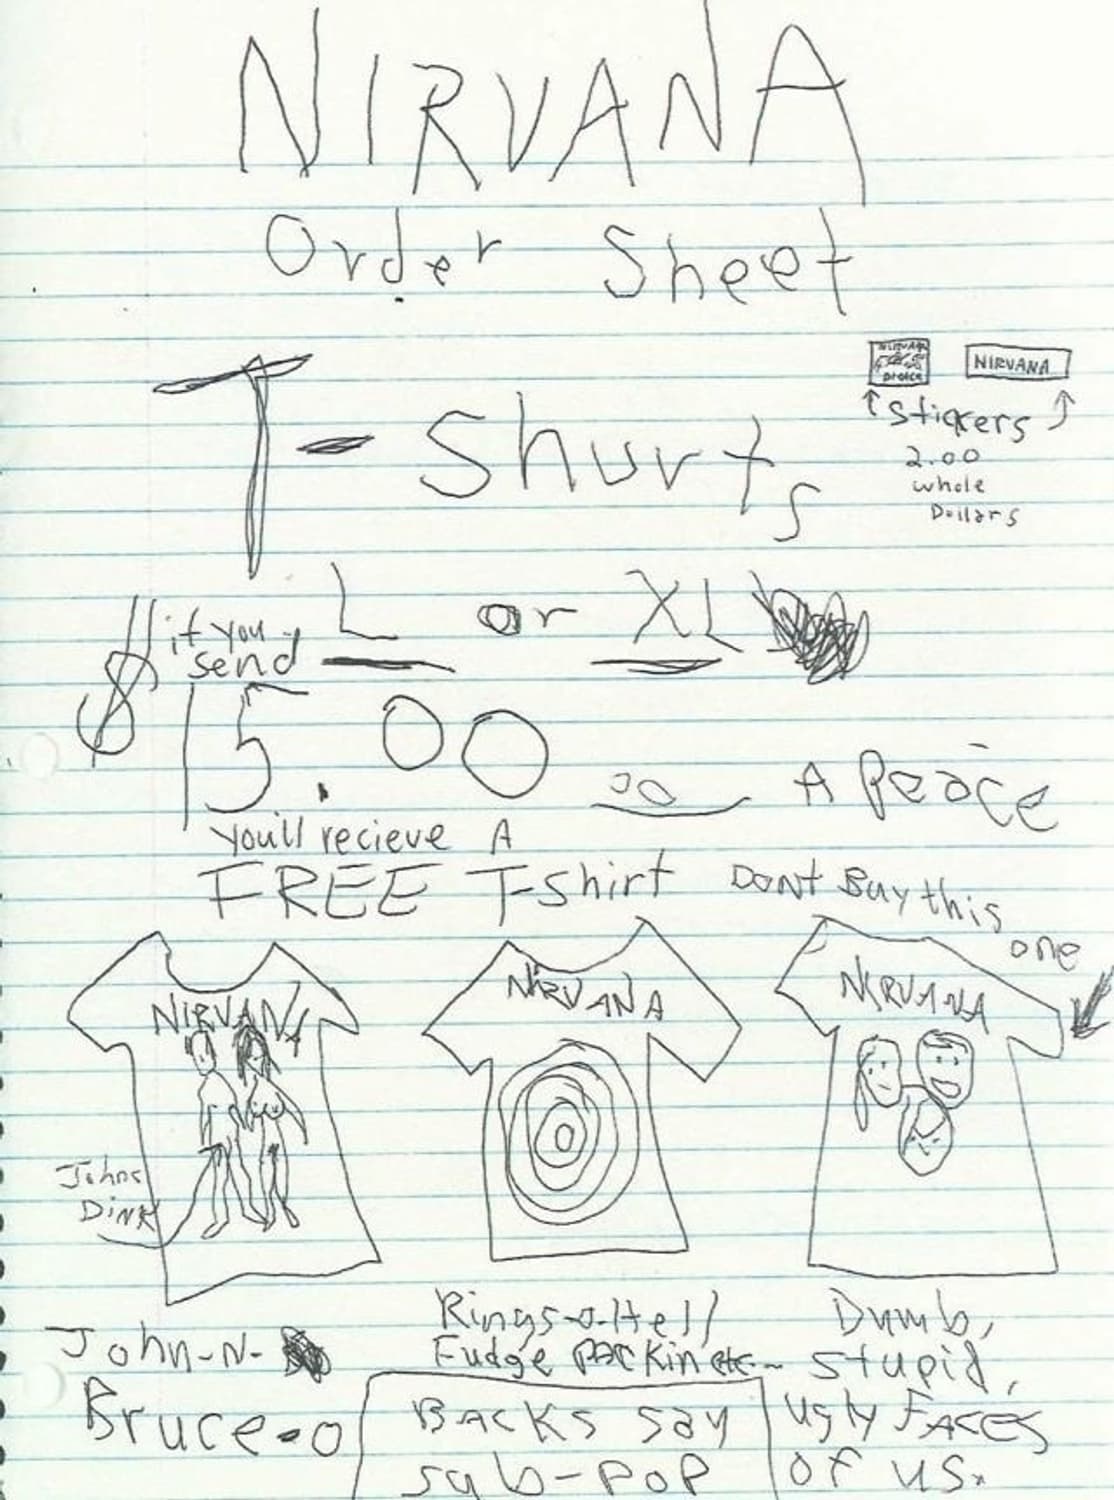 NIRVANA
Order Sheet
NIRVANA
BLEACH
NIRVANA
T-Shurts
Stickers
2.00
whole
Dollars
L or XL
$ if you
send
15.00 A Peace
you'll recieve A
FREE T-Shirt
Dont Buy this
one
NIRVANA
NIRVANA
NIRVANA
Johns
Dink
John-N-
Bruce-o
Rings-o-Hell
Fudge PACKin etc-
Dumb,
stupid,
ugly FACES
of us.
BACKS say
sub-pop